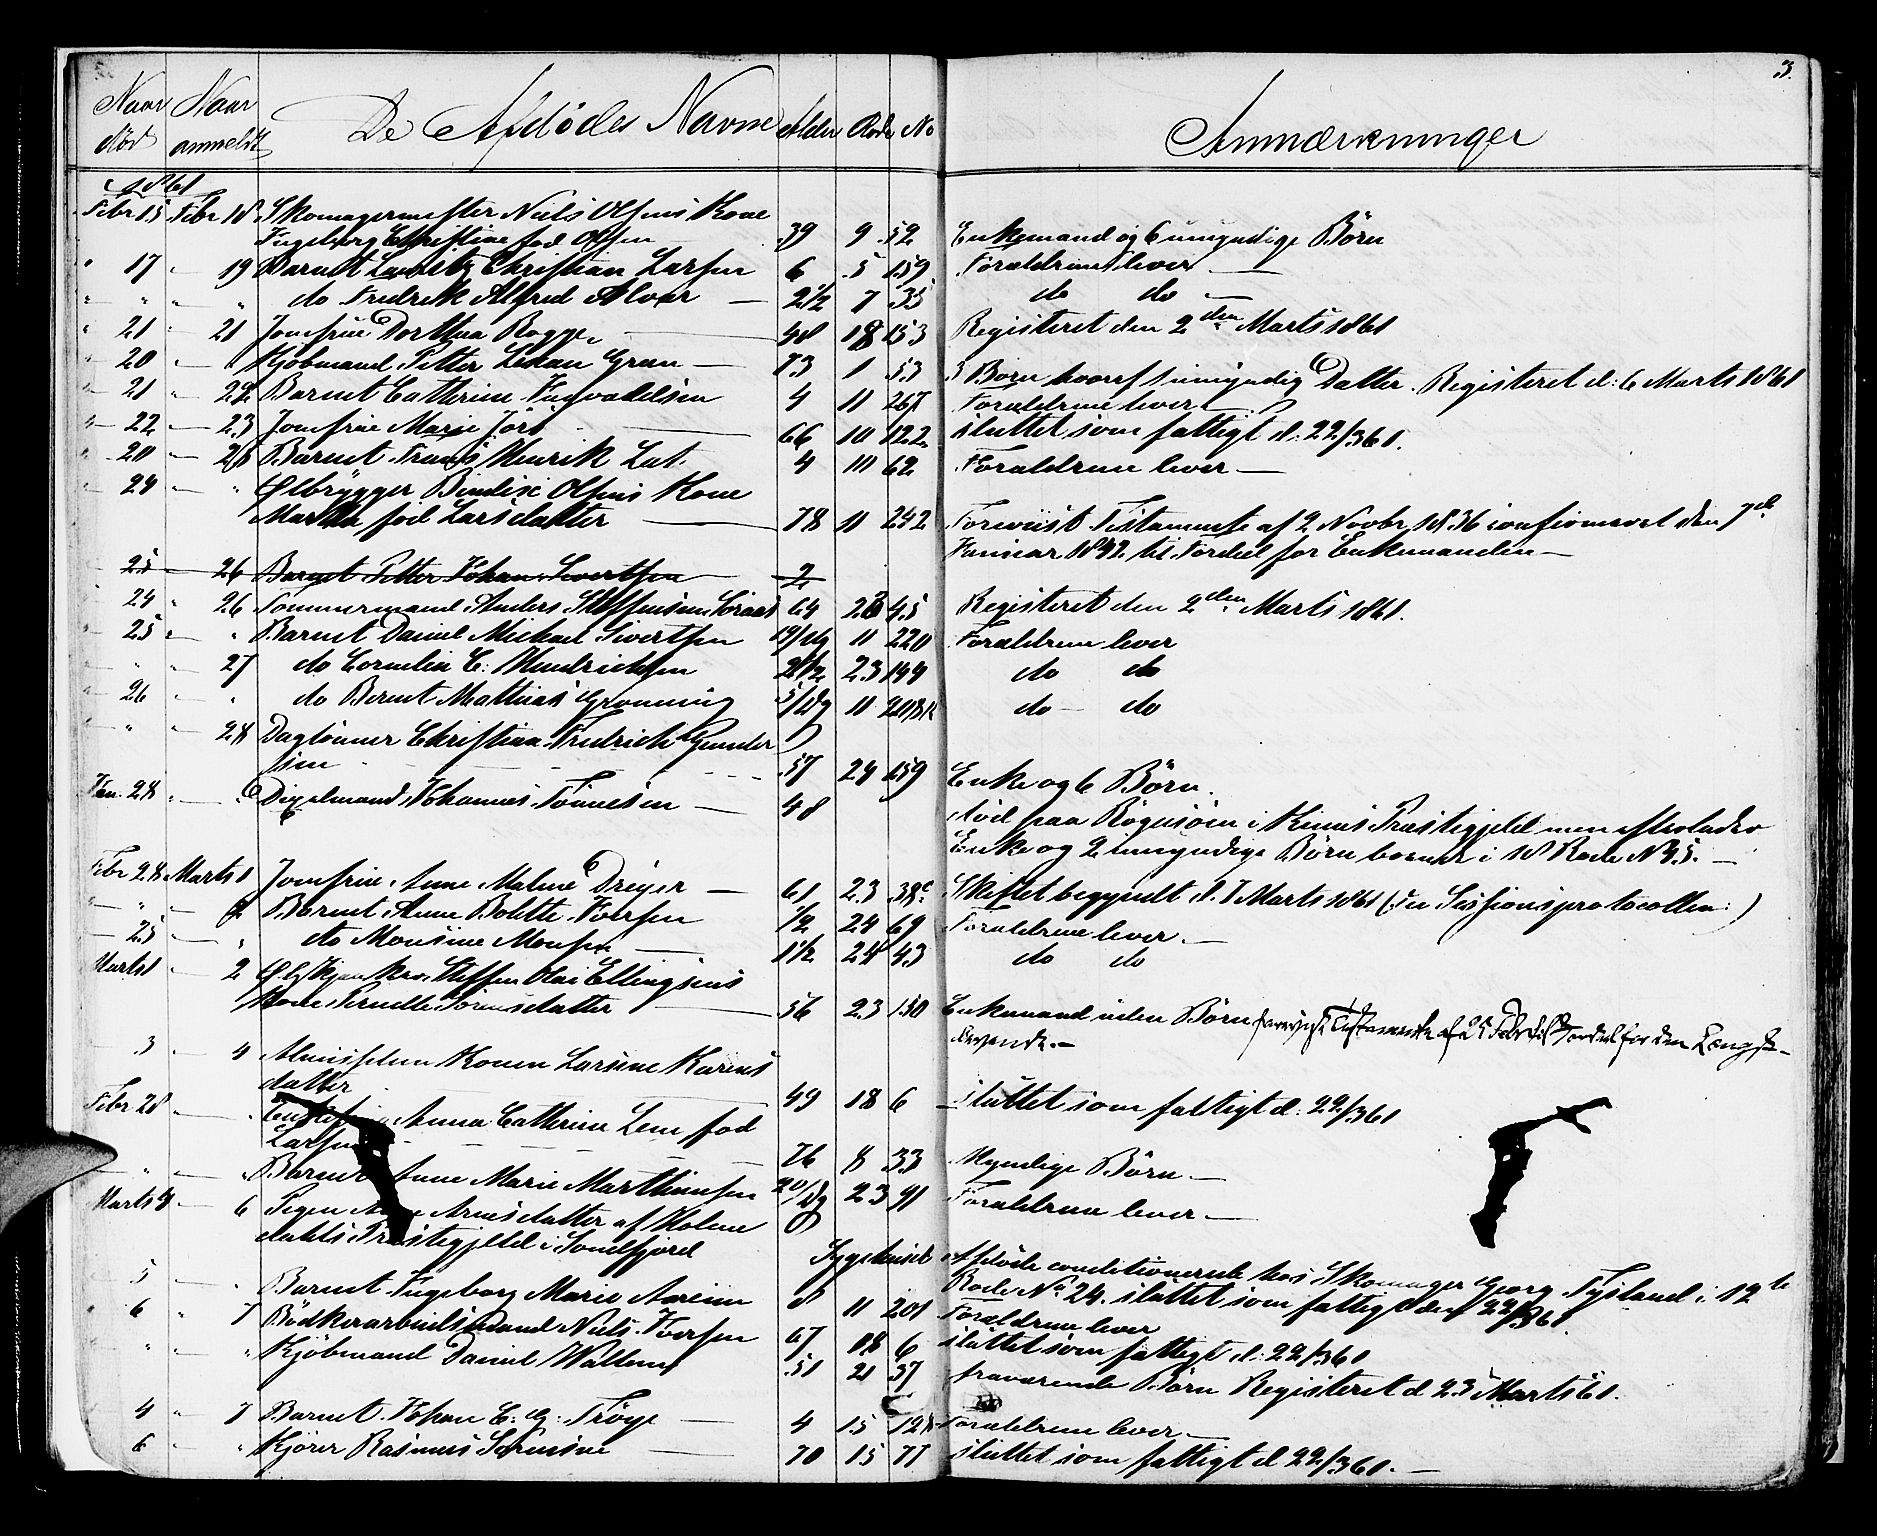 3.
Naar død Naar anmeldt De Afdødes Navne Alder Rode No Anmærkninger
1861
Febr 15 Febr 18 Skomagermester Niels Olsens Kone
Ingeborg Christine fød Olsen 39 9 52 Enkemand og 6 umyndige Børn
" 17 — 19 Barnet Christian Larsen 6 5 159 Forældrene lever —
" " — " do Fredrik Alfred Alver — 2 1/2 7 35 do do —
" 21 — 21 Jomfrue Dorthea — 48 18 153 Registeret den 2den Marts 1861
" 20 — " Kjøbmand Petter Gran — 73 1 53 5 Børn hvoraf 1 umyndig Datter. Registeret d: 6 Marts 1861
" 21 — 22 Barnet Cathrine Ingvaldsen 4 11 267 Forældrene lever —
" 22 — 23 Jomfrue Marie — 66 10 122 sluttet som fattigt d: 22/3 61.
" 20 — Barnet Henrik 4 10 62 Forældrene lever —
" 24 — " Ølbrygger Olsens Kone
Martha fød Larsdatter — 78 11 242 Forevist Testamente af 2 Novbr 1836 confirmeret den 7de
Januar 1842 til Fordel for Enkemanden —
25 — 26 Barnet Petter Johan Sivertsen 2
24 " 26 Tømmermand Anders Steffensen 64 45 Registeret den 2den Marts 1861.
" 25 " " Barnet Daniel Michael Sivertsen 19/Dg 11 220 Forældrene lever
" " — 27 do Cornelia C: Hendrichsen 2 1/2 23 199 do do
" 26 — " do Bernt Mathias Grønning 5/Dg 11 do — do
" " — 28 Daglønner Christian Fredrich Gunder
sen 57 24 159 Enke og 6 Børn.
Jan. 28 " — " Johannes Tønnesen — 48 død paa i Kinns Præstegjeld men efterlader
Enke og 2 umyndige Børn boende i 18 Rode N 95. —
Febr 28 Marts 1 Jomfrue Anne Malene Dreyer — 61 23 38c Skiftet begyndt d. 1 Marts 1861 (see Sessionsprotocollen:)
" " — 2 Barnet Anne Bolette Iversen 1/2 24 69 Forældrene lever —
" 25 — " do Monsine Monsen — 1 1/2 24 43 do do
Marts 1 — 2 Steffen Olai Ellingsens
Kone Pernille Sørensdatter — 56 23 150 Enkemand uden Børn forevist Testamente af 25 Febr til Fordel for den Længst-
levende. —
" 3 — 4 Konen Larsine Karines
datter — 49 18 6 — sluttet som fattigt d: 22/3 61
Febr 28 — " Anna Cathrine Lem fød
Larsen — 76 8 33 Myndige Børn —
" " — " Barnet Anne Marie Marthinsen 20/Dg 23 91 Forældrene lever —
Marts 4 — 6 Pigen Arnesdatter af Holme
dahls Præstegjeld i Søndfjord Sygehuset Afdøde conditionerede hos Skomager Georg i 12te
Rode No 24. sluttet som fattigt den 22/3 61
5 — " Barnet Ingeborg Marie 8 11 201 Forældrene lever
" 6 " 7 Bødkerarbeidsmand Niels Iversen 67 18 6 sluttet som fattigt d: 22/3 61
" " " Kjøbmand Daniel Wallem 51 21 37 fraværende Børn Registeret d 25 Marts 61.
4 " 7 Barnet Johan C: G: — 4 15 Forældrene lever —
6 — " Kjører Rasmus Sørensen — 70 15 77 sluttet som fattigt d 22/3 61. —